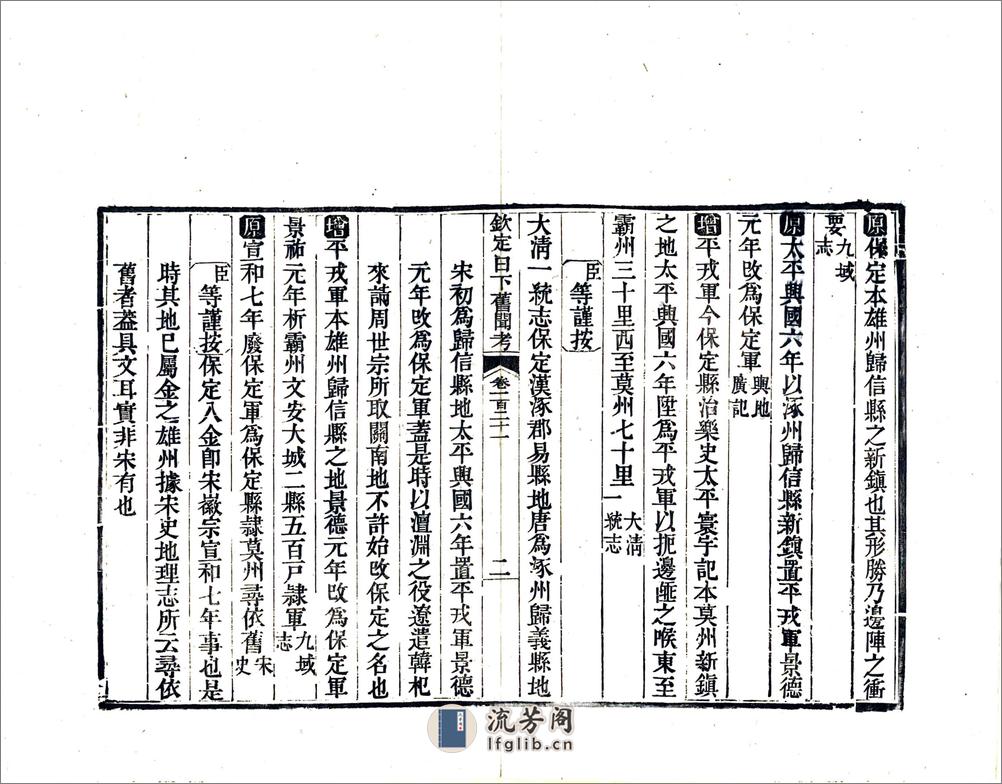 原保定本雄州歸信縣之新鎭也其形勝乃邊陣之衝
要九域志
原太平興國六年以涿州歸信縣新鎭置平戎軍景德
元年改爲保定軍輿地廣記
增平戎軍今保定縣治樂史太平寰宇記本莫州新鎭
之地太平興國六年陞爲平戎軍以扼邊陲之喉東至
霸州三十里西至莫州七十里大清一統志
臣等謹按
大清一統志保定漢涿郡易縣地唐爲涿州歸義縣地
欽定日下舊聞考 卷一百二十一 二
宋初爲歸信縣地太平興國六年置平戎軍景德
元年改爲保定軍蓋是時以澶淵之役遼遣韓杞
來議周世宗所取關南地不許始改保定之名也
增平戎軍本雄州歸信縣之地景德元年改爲保定軍
景祐元年析霸州文安大城二縣五百戸隷軍九域志
原宣和七年廢保定軍爲保定縣隷莫州尋依舊宋史
臣等謹按保定入金卽宋徽宗宣和七年事也是
時其地已屬金之雄州據宋史地理志所云尋依
舊者葢具文耳實非宋有也
流芳阁
lfglib.cn